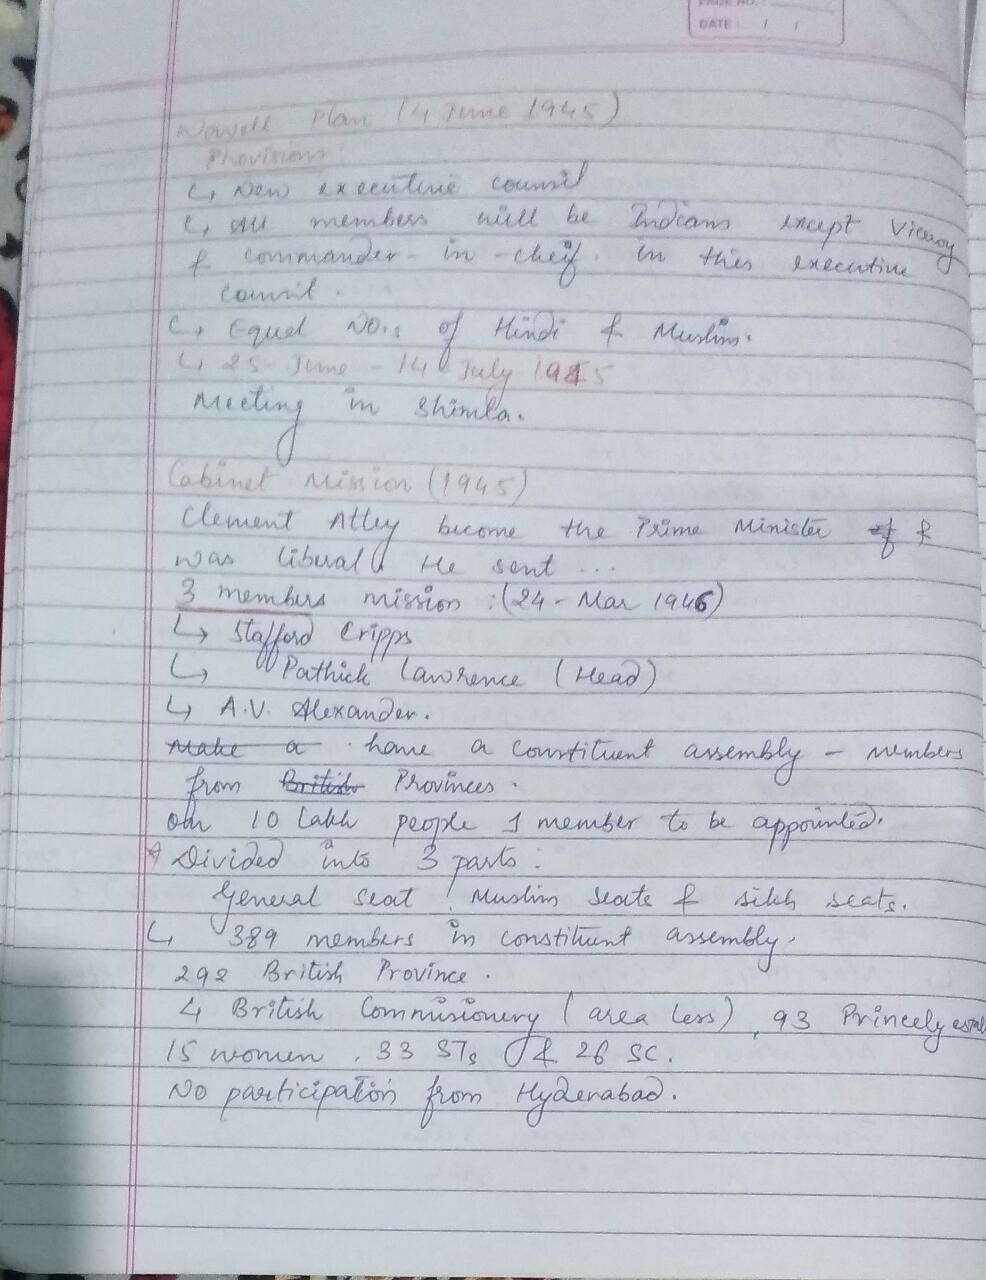 PAGE NO. :
DATE : / /
Wavell Plan (4 June 1945)
Provisions
↳ New executive council
↳ All members will be Indians except Viceroy
& commander-in-cheif. in this executive
council.
↳ Equal No.s of Hindi & Muslims.
↳ 25 June - 14 July 1945
Meeting in Shimla.
Cabinet Mission (1945)
Clement Atley become the Prime Minister of &
was liberal He sent ...
3 members mission : (24-Mar 1946)
↳ Stafford Cripps
↳ Pathick Lawrence (Head)
↳ A.V. Alexander.
Make a have a constituent assembly - members
from British Provinces.
on 10 Lakh people 1 member to be appointed.
Divided into 3 parts :
General seat, Muslim seats & sikh seats.
↳ 389 members in constituent assembly.
292 British Province.
4 British Commisionery (area less), 93 Princely
15 women, 33 STs & 26 SC.
No participation from Hyderabad.